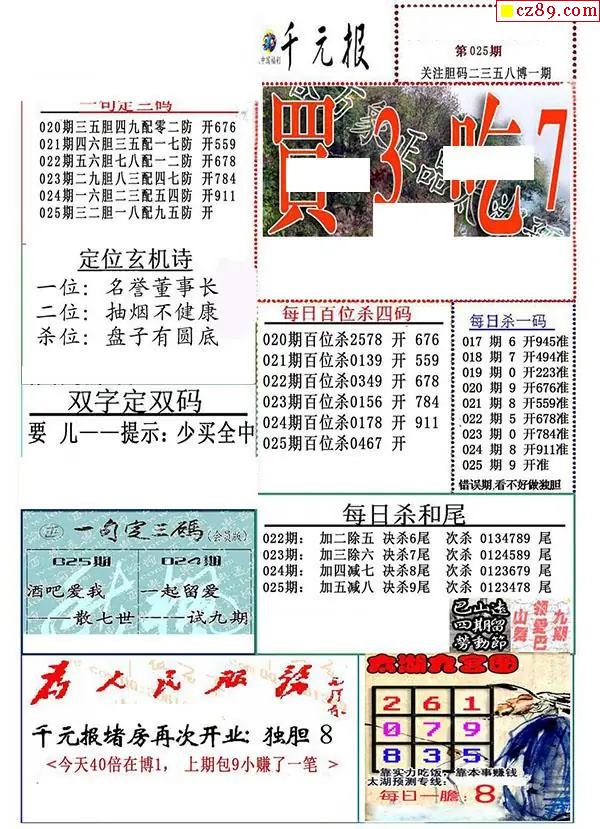 cz89.com
中国福利
千元报
第025期
关注胆码二三五八博一期
一句定三码
020期三五胆四九配零二防 开676
021期四六胆三五配一七防 开559
022期五六胆七八配一二防 开678
023期二九胆八三配四七防 开784
024期一六胆二三配五四防 开911
025期三二胆一八配九五防 开
買 3 吃 7
定位玄机诗
一位: 名誉董事长
二位: 抽烟不健康
杀位: 盘子有圆底
每日百位杀四码
020期百位杀2578 开 676
021期百位杀0139 开 559
022期百位杀0349 开 678
023期百位杀0156 开 784
024期百位杀0178 开 911
025期百位杀0467 开
每日杀一码
017 期 6 开945准
018 期 7 开494准
019 期 0 开223准
020 期 9 开676准
021 期 8 开559准
022 期 5 开678准
023 期 0 开784准
024 期 8 开911准
025 期 9 开准
错误期,看不好做独胆
双字定双码
要 儿——提示: 少买全中
每日杀和尾
022期: 加二除五 决杀6尾 次杀 0134789 尾
023期: 加三除六 决杀7尾 次杀 0124589 尾
024期: 加四减七 决杀8尾 次杀 0123679 尾
025期: 加五减八 决杀9尾 次杀 0123478 尾
一句定三碼(会员版)
025期
024期
酒吧爱我
一起留爱
——散七世
——试九期
四期留
勞動節
山舞
領愛巴
九期
为人民服务
千元报堵房再次开业: 独胆 8
<今天40倍在博1, 上期包9小赚了一笔 >
太湖九宫图
2 6 1
0 7 9
8 3 5
靠实力吃饭,靠本事赚钱
太湖预测专线:
每日一膽: 8